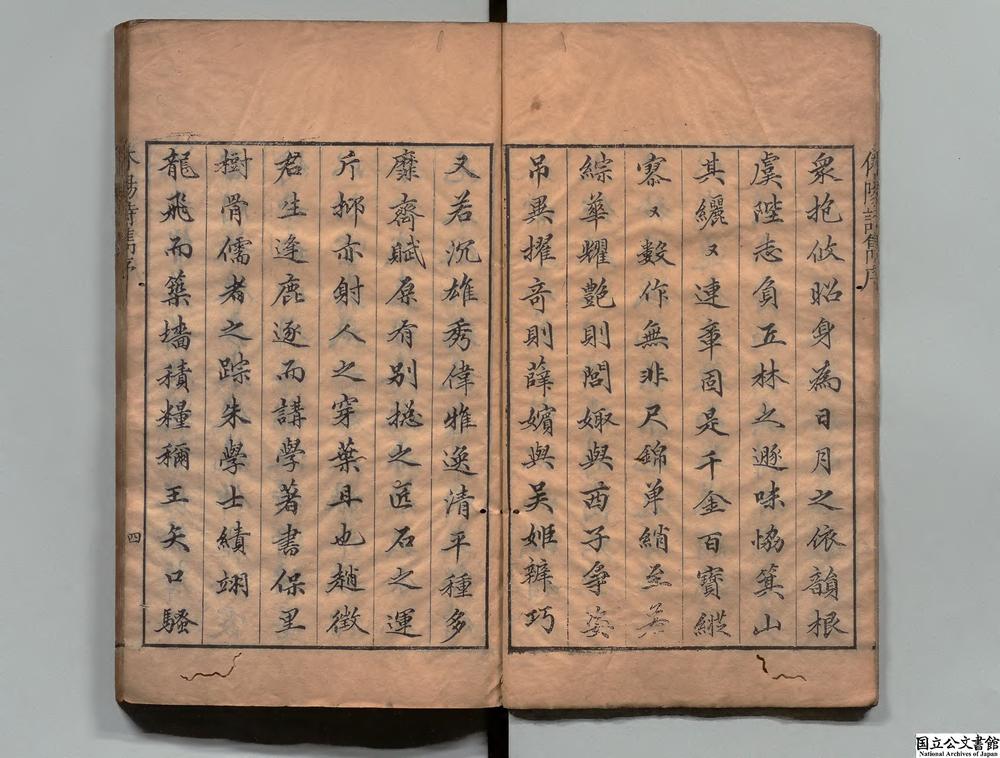 休陽詩雋序
衆抱攸昭身為日月之依韻根
虞陛志負丘林之遯味恊箕山
其纚〻連章固是千金百寳縱
寡〻數作無非尺錦单綃至若
綜華耀艶則閭娵與西子争姿
吊異擢竒則薛嬪與吴姬辧巧
又若沉雄秀偉雅逸清平種多
靡齋賦原有別揔之匠石之運
斤抑亦射人之穿葉耳也趙徴
君生逢鹿逐而講學著書保里
樹骨儒者之踪朱學士績翊
龍飛而築墻積糧稱王矢口騷
休陽詩雋序
四
国立公文書館
National Archives of Japan